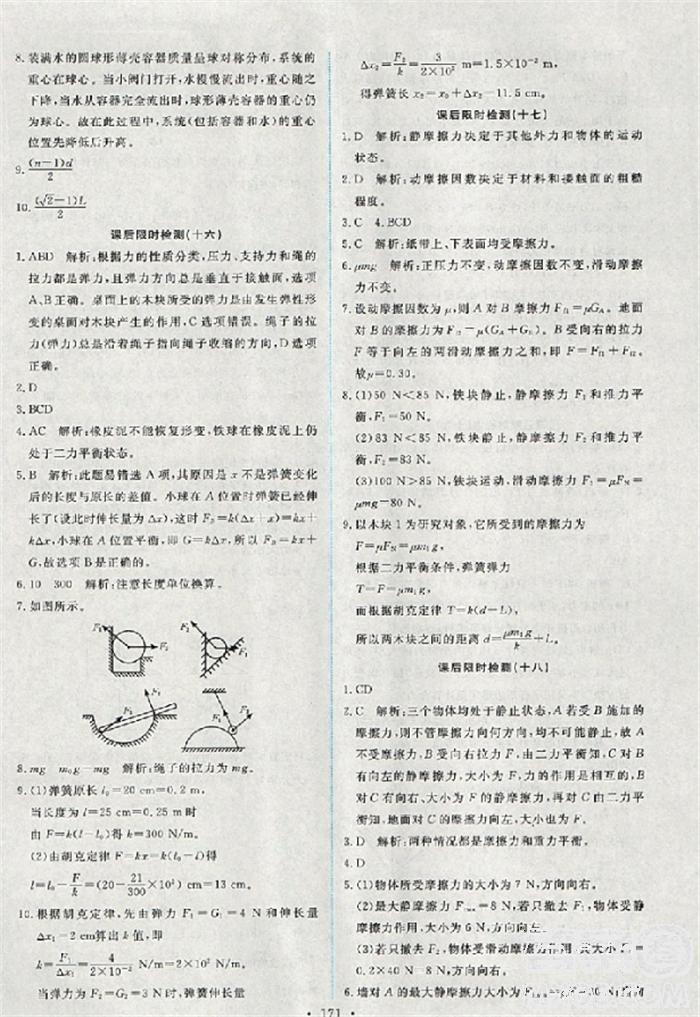 8. 装满水的圆球形薄壳容器质量呈球对称分布，系统的
重心在球心。当小阀门打开，水慢慢流出时，重心随之
下降，当水从容器完全流出时，球形薄壳容器的重心仍
为球心。故在此过程中，系统（包括容器和水）的重心
位置先降低后升高。
9. (n−1)d/2
10. (√2−1)L/2
课后限时检测(十六)
1. ABD 解析：根据力的性质分类，压力、支持力和绳的
拉力都是弹力，且弹力方向总是垂直于接触面，选项
A、B正确。桌面上的木块所受的弹力是由发生弹性形
变的桌面对木块产生的作用，C选项错误。绳子的拉
力(弹力)总是沿着绳子指向绳子收缩的方向，D选项
正确。
2. D
3. BCD
4. AC 解析：橡皮泥不能恢复形变，铁球在橡皮泥上仍
处于二力平衡状态。
5. B 解析：此题易错选A项，其原因是x不是弹簧变化
后的长度与原长的差值。小球在A位置时弹簧已经伸
长了(设此时伸长量为Δx)，这时F_B=k(Δx+x)=kx+
kΔx，小球在A位置平衡，即G=kΔx，所以F_B=kx+
G，故选项B是正确的。
6. 10 300 解析：注意长度单位换算。
7. 如图所示。
F₂ F₁
F₂ F₁
F₂ F₁
F₂ F₁
8. mg m₀g−mg 解析：绳子的拉力为mg。
9. (1)弹簧原长l₀=20 cm=0.2 m，
当长度为l=25 cm=0.25 m时
由F=k(l−l₀)得k=300 N/m。
(2)由胡克定律F=kx=k(l₀−l)得
l=l₀−F/k=(20−21/300×10²) cm=13 cm。
10. 根据胡克定律，先由弹力F₁=G₁=4 N和伸长量
Δx₁=2 cm算出k值，即
k=F₁/Δx₁=4/(2×10⁻²) N/m=2×10² N/m。
当弹力为F₂=G₂=3 N时，弹簧伸长量
Δx₂=F₂/k=3/(2×10²) m=1.5×10⁻² m，
得弹簧长x₂=x₀+Δx₂=11.5 cm。
课后限时检测(十七)
1. D 解析：静摩擦力决定于其他外力和物体的运动
状态。
2. D 解析：动摩擦因数决定于材料和接触面的粗糙
程度。
3. C 4. BCD
5. C 解析：纸带上、下表面均受摩擦力。
6. μmg 解析：正压力不变，动摩擦因数不变，滑动摩擦
力不变。
7. 设动摩擦因数为μ，则A对B摩擦力F_f1=μG_A。地面
对B的摩擦力为F_f2=μ(G_A+G_B)。B受向右的拉力
F等于向左的两滑动摩擦力之和，即F=F_f1+F_f2。
故μ=0.30。
8. (1)50 N<85 N，铁块静止，静摩擦力F₁和推力平
衡，F₁=50 N。
(2)83 N<85 N，铁块静止，静摩擦力F₂和推力平
衡，F₂=83 N。
(3)100 N>85 N，铁块运动，滑动摩擦力F₃=μF_N=
μmg=80 N。
9. 以木块1为研究对象，它所受到的摩擦力为
F=μF_N=μm₁g，
根据二力平衡条件，弹簧弹力
T=F=μm₁g，
而根据胡克定律T=k(d−L)，
所以两木块之间的距离d=μm₁g/k+L。
课后限时检测(十八)
1. CD
2. C 解析：三个物体均处于静止状态，A若受B施加的
摩擦力，则不管摩擦力向何方向，均不可能静止，故A
不受摩擦力，B受向右拉力F，由二力平衡知，C对B
有向左的静摩擦力，大小为F，力的作用是相互的，B
对C有向右的静摩擦力，大小为F，再对C由二力平
衡知，地面对C的摩擦力向左，大小也为F。
3. D 解析：两种情况都是摩擦力和重力平衡。
4. D
5. (1)物体所受摩擦力的大小为7 N，方向向右。
(2)最大静摩擦力F_max=8 N，若只撤去F₁，摩擦力
大小为6 N，方向向右。
(3)若只撤去F₂，物体受
0.2×40 N=8 N，方向向左。
6. 墙对A的最大静摩擦力大小为
171